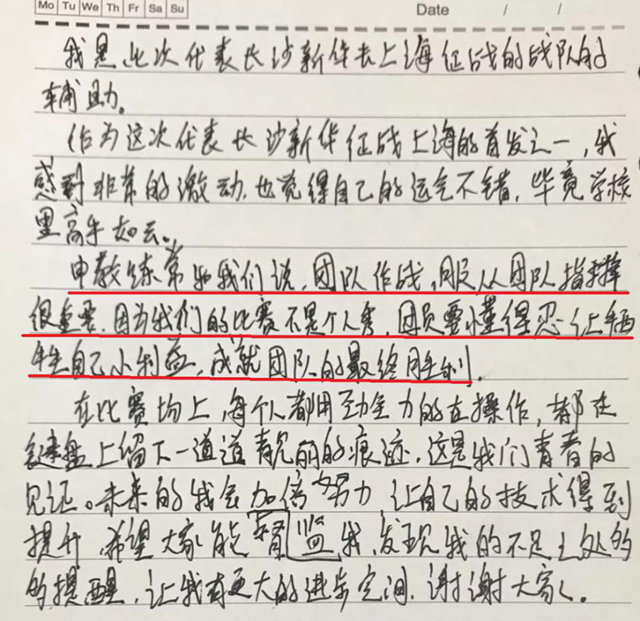 Mo Tu We Th Fr Sa Su Date / /
我是此次代表长沙新华去上海征战的战队的
辅助。
作为这次代表长沙新华征战上海的首发之一,我
感到非常的激动,也觉得自己的运气不错,毕竟学校
里高手如云。
申教练常和我们说,团队作战,服从团队指挥
很重要,因为我们的比赛不是个人秀,团员要懂得忍让牺
牲自己小利益,成就团队的最终胜利。
在比赛场上,每个人都用劲全力的在操作,都在
键盘上留下一道道靓丽的痕迹,这是我们青春的
见证。未来的我会加倍努力,让自己的技术得到
提升,希望大家能督监我,发现我的不足之处的
的提醒,让我有更大的进步空间,谢谢大家。